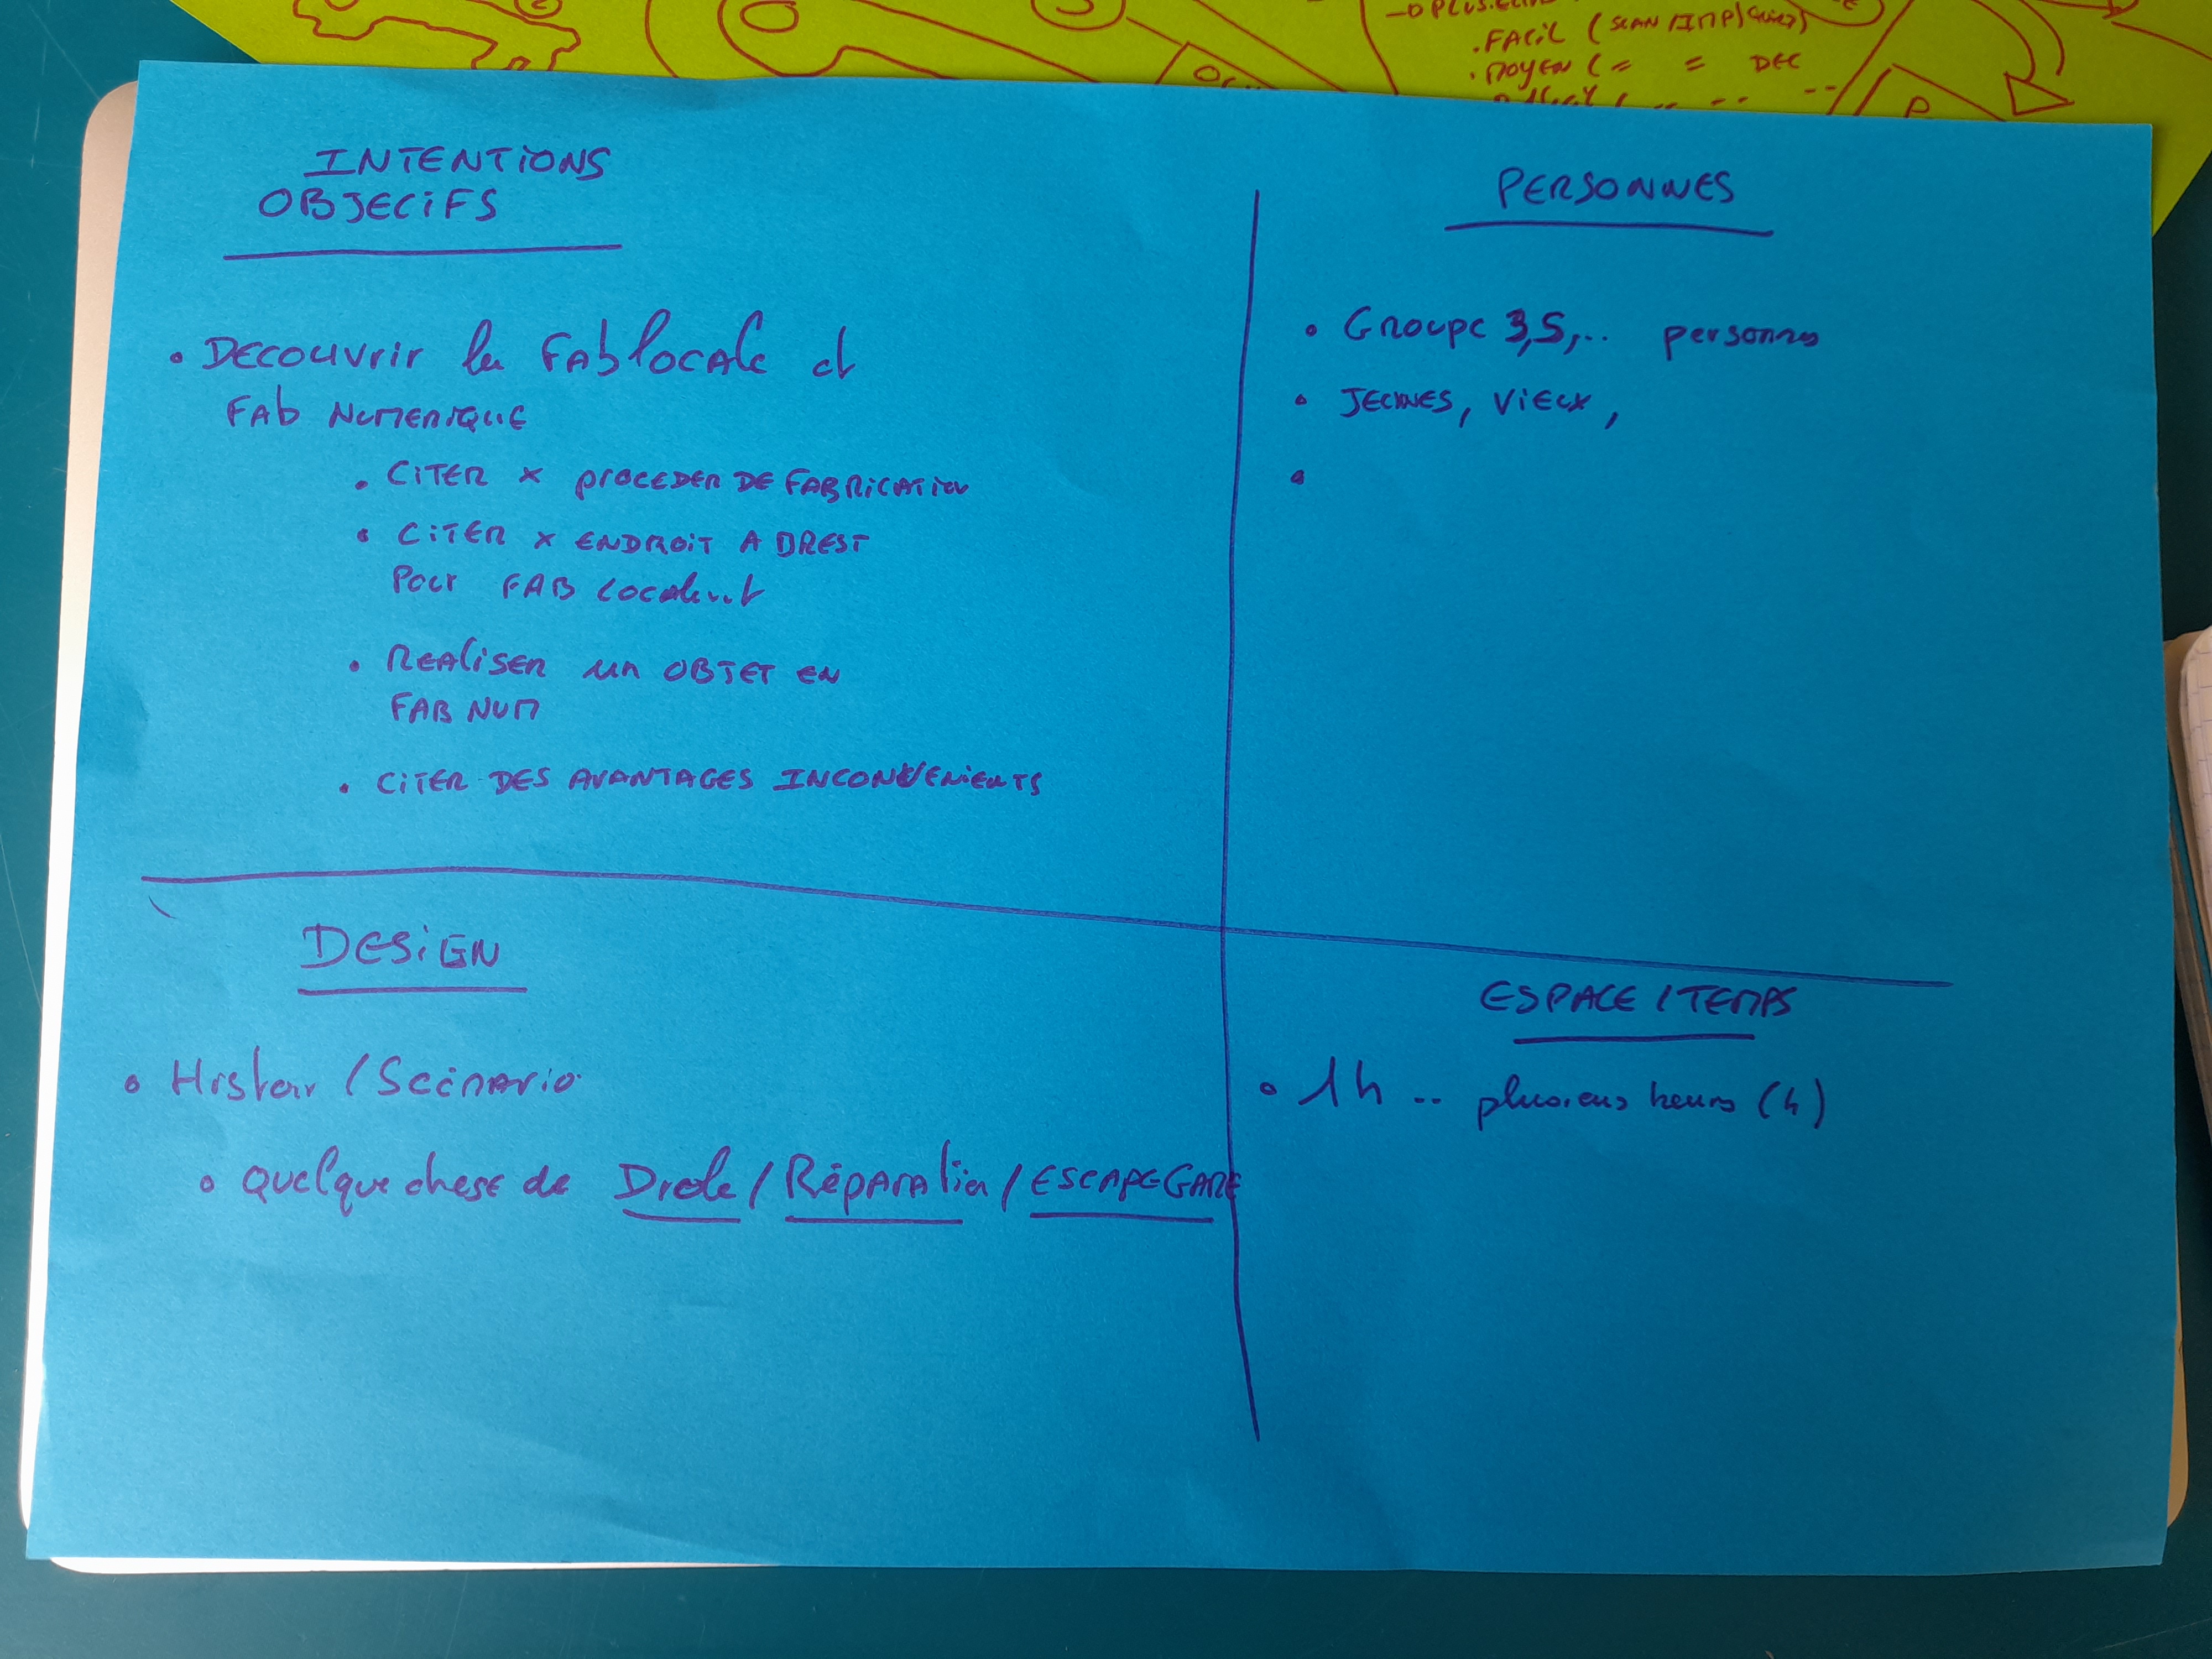 INTENTIONS
OBJECIFS
• DECOUVrir la FAb locale et
FAb NUMERIQUE
• CITER x proCEDER DE FABRICATION
• CITER x ENDROIT A BREST
Pour FAB Localement
• REALISER un OBJET EN
FAB NUM
• CITER DES AVANTAGES INCONVENIENTS
PERSONNES
• Groupe 3,5,.. personnes
• JEUNES, VIEUX,
•
DESIGN
• Histoir / Scénario
• Quelque chose de Drole / Réparation / ESCAPE GAME
ESPACE / TEMPS
• 1h .. plusieurs heures (h)
. FACIL (SCAN / IMP /
. MOYEN (= = DEC